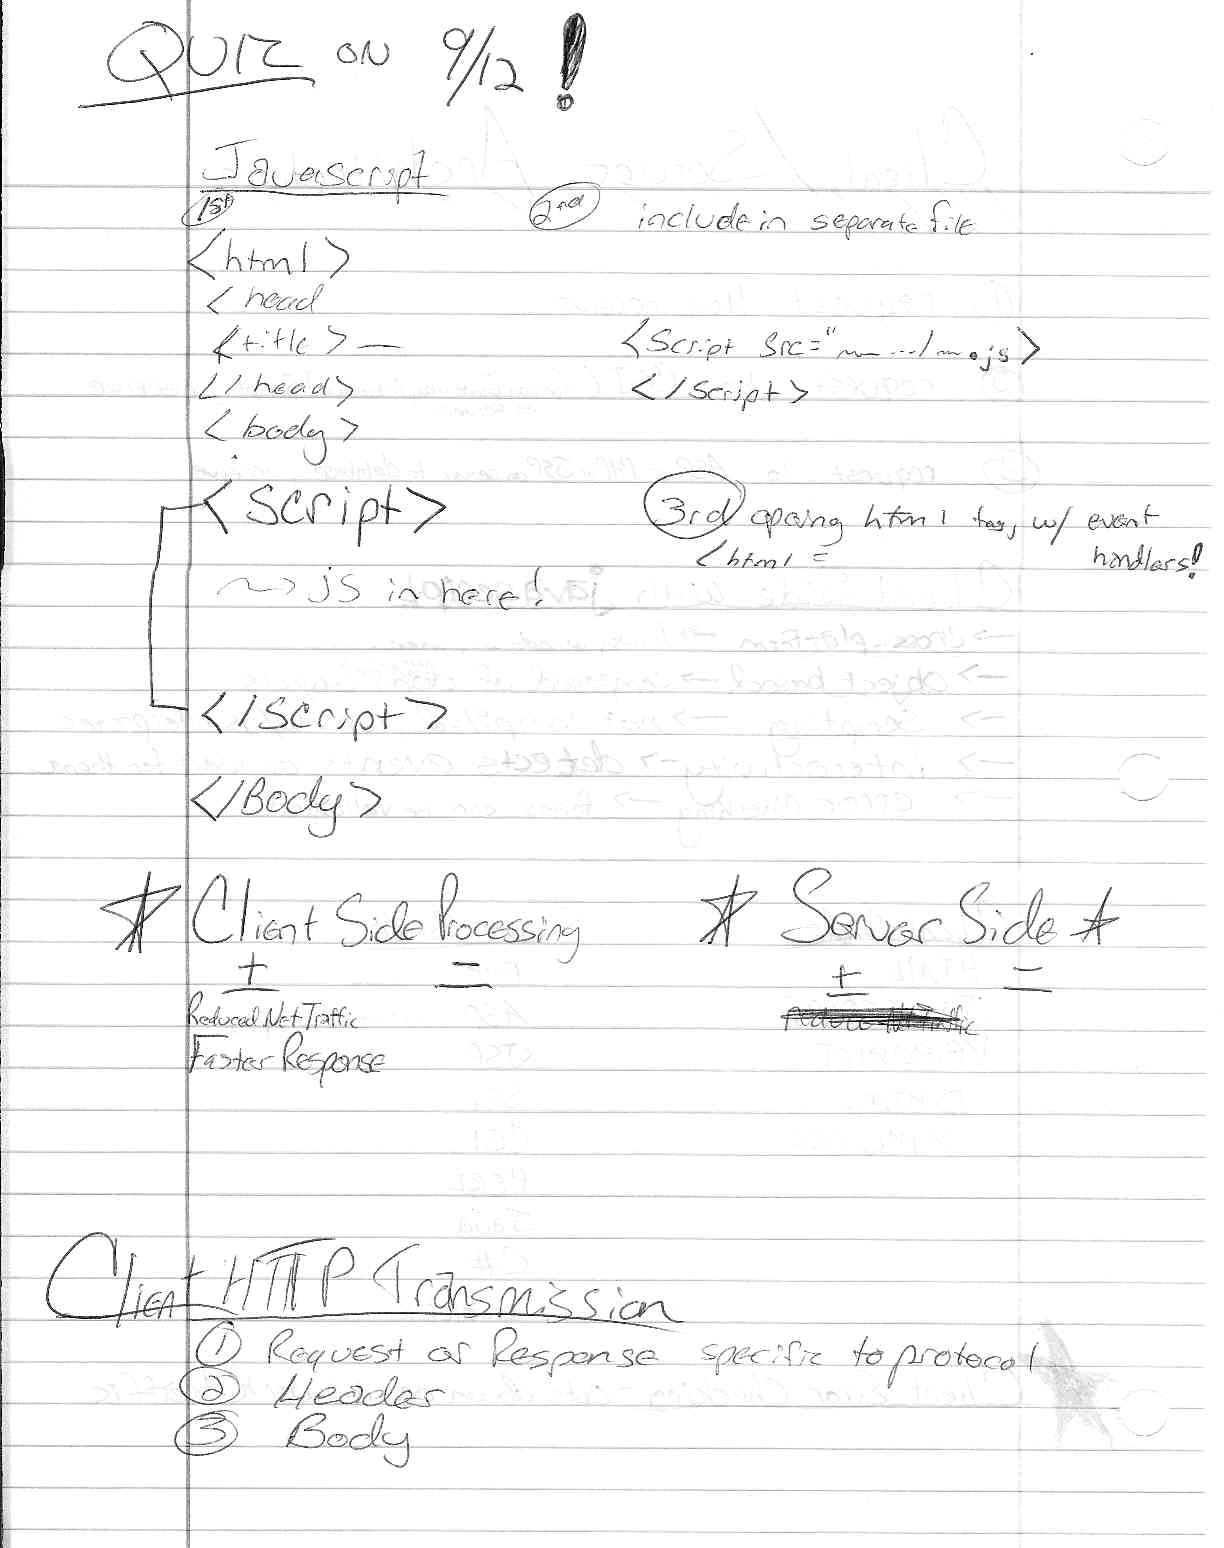 QUIZ ON 9/12!
Javascript
1st
<html>
<head
<title> —
</head>
<body>
<script>
js in here!
</script>
</Body>
2nd include in separate file
<Script Src=" .../ .js>
</Script>
3rd opening html tag, w/ event
<html = handlers!
Client Side Processing
+ -
Reduced Net Traffic
Faster Response
Server Side
+ -
Client HTTP Transmission
① Request or Response specific to protocol
② Header
③ Body